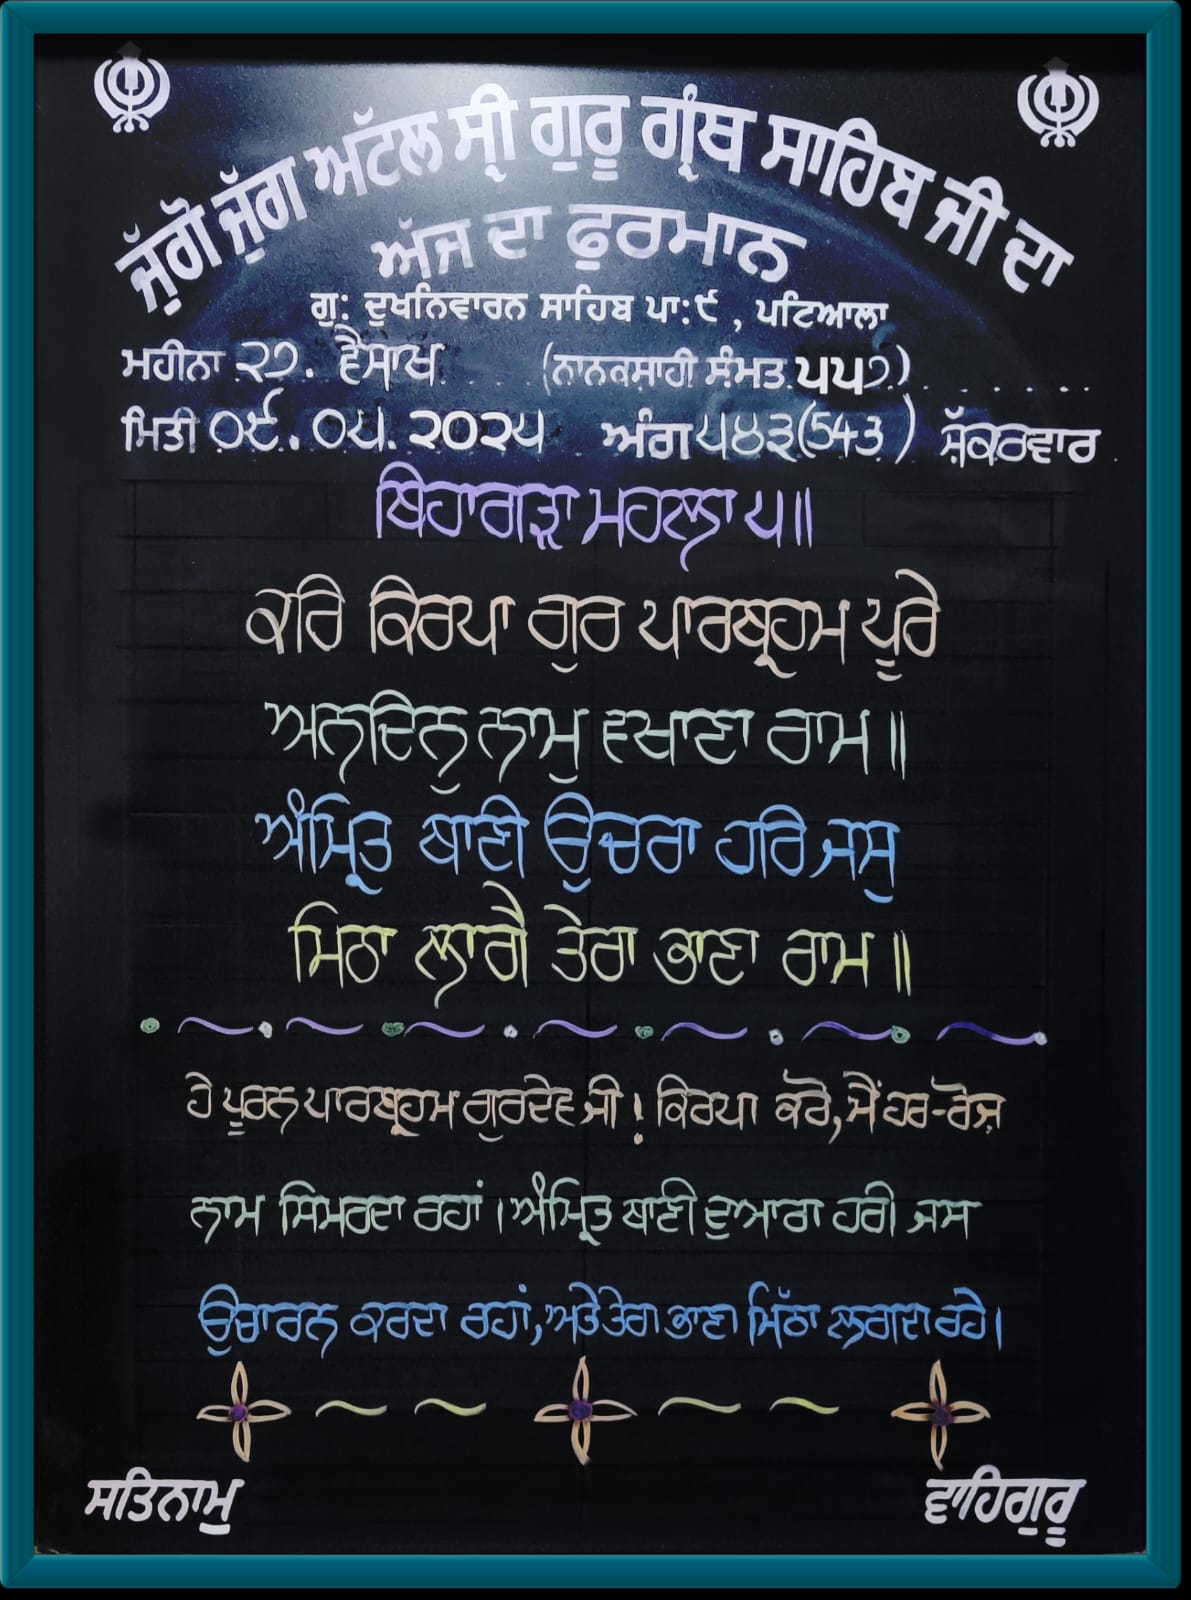 ਜੁੱਗੋ ਜੁੱਗ ਅਟੱਲ ਸ੍ਰੀ ਗੁਰੂ ਗ੍ਰੰਥ ਸਾਹਿਬ ਜੀ ਦਾ
ਅੱਜ ਦਾ ਫੁਰਮਾਨ
ਗੁ: ਦੁਖਨਿਵਾਰਨ ਸਾਹਿਬ ਪਾ:੯ , ਪਟਿਆਲਾ
ਮਹੀਨਾ ੨੭. ਵੈਸਾਖ (ਨਾਨਕਸਾਹੀ ਸੰਮਤ ੫੫੭)
ਮਿਤੀ ੦੯.੦੫.੨੦੨੫ ਅੰਗ ੫੪੩(543) ਸ਼ੁੱਕਰਵਾਰ
ਬਿਹਾਗੜਾ ਮਹਲਾ ੫॥
ਕਰਿ ਕਿਰਪਾ ਗੁਰ ਪਾਰਬ੍ਰਹਮ ਪੂਰੇ
ਅਨਦਿਨੁ ਨਾਮੁ ਵਖਾਣਾ ਰਾਮ ॥
ਅੰਮ੍ਰਿਤ ਬਾਣੀ ਉਚਰਾ ਹਰਿ ਜਸੁ
ਮਿਠਾ ਲਾਗੈ ਤੇਰਾ ਭਾਣਾ ਰਾਮ ॥
ਹੇ ਪੂਰਨ ਪਾਰਬ੍ਰਹਮ ਗੁਰਦੇਵ ਜੀ! ਕਿਰਪਾ ਕਰੋ, ਮੈਂ ਹਰ-ਰੋਜ਼
ਨਾਮ ਸਿਮਰਦਾ ਰਹਾਂ। ਅੰਮ੍ਰਿਤ ਬਾਣੀ ਦੁਆਰਾ ਹਰੀ ਜਸ
ਉਚਾਰਨ ਕਰਦਾ ਰਹਾਂ, ਅਤੇ ਤੇਰਾ ਭਾਣਾ ਮਿੱਠਾ ਲਗਦਾ ਰਹੇ।
ਸਤਿਨਾਮੁ
ਵਾਹਿਗੁਰੂ